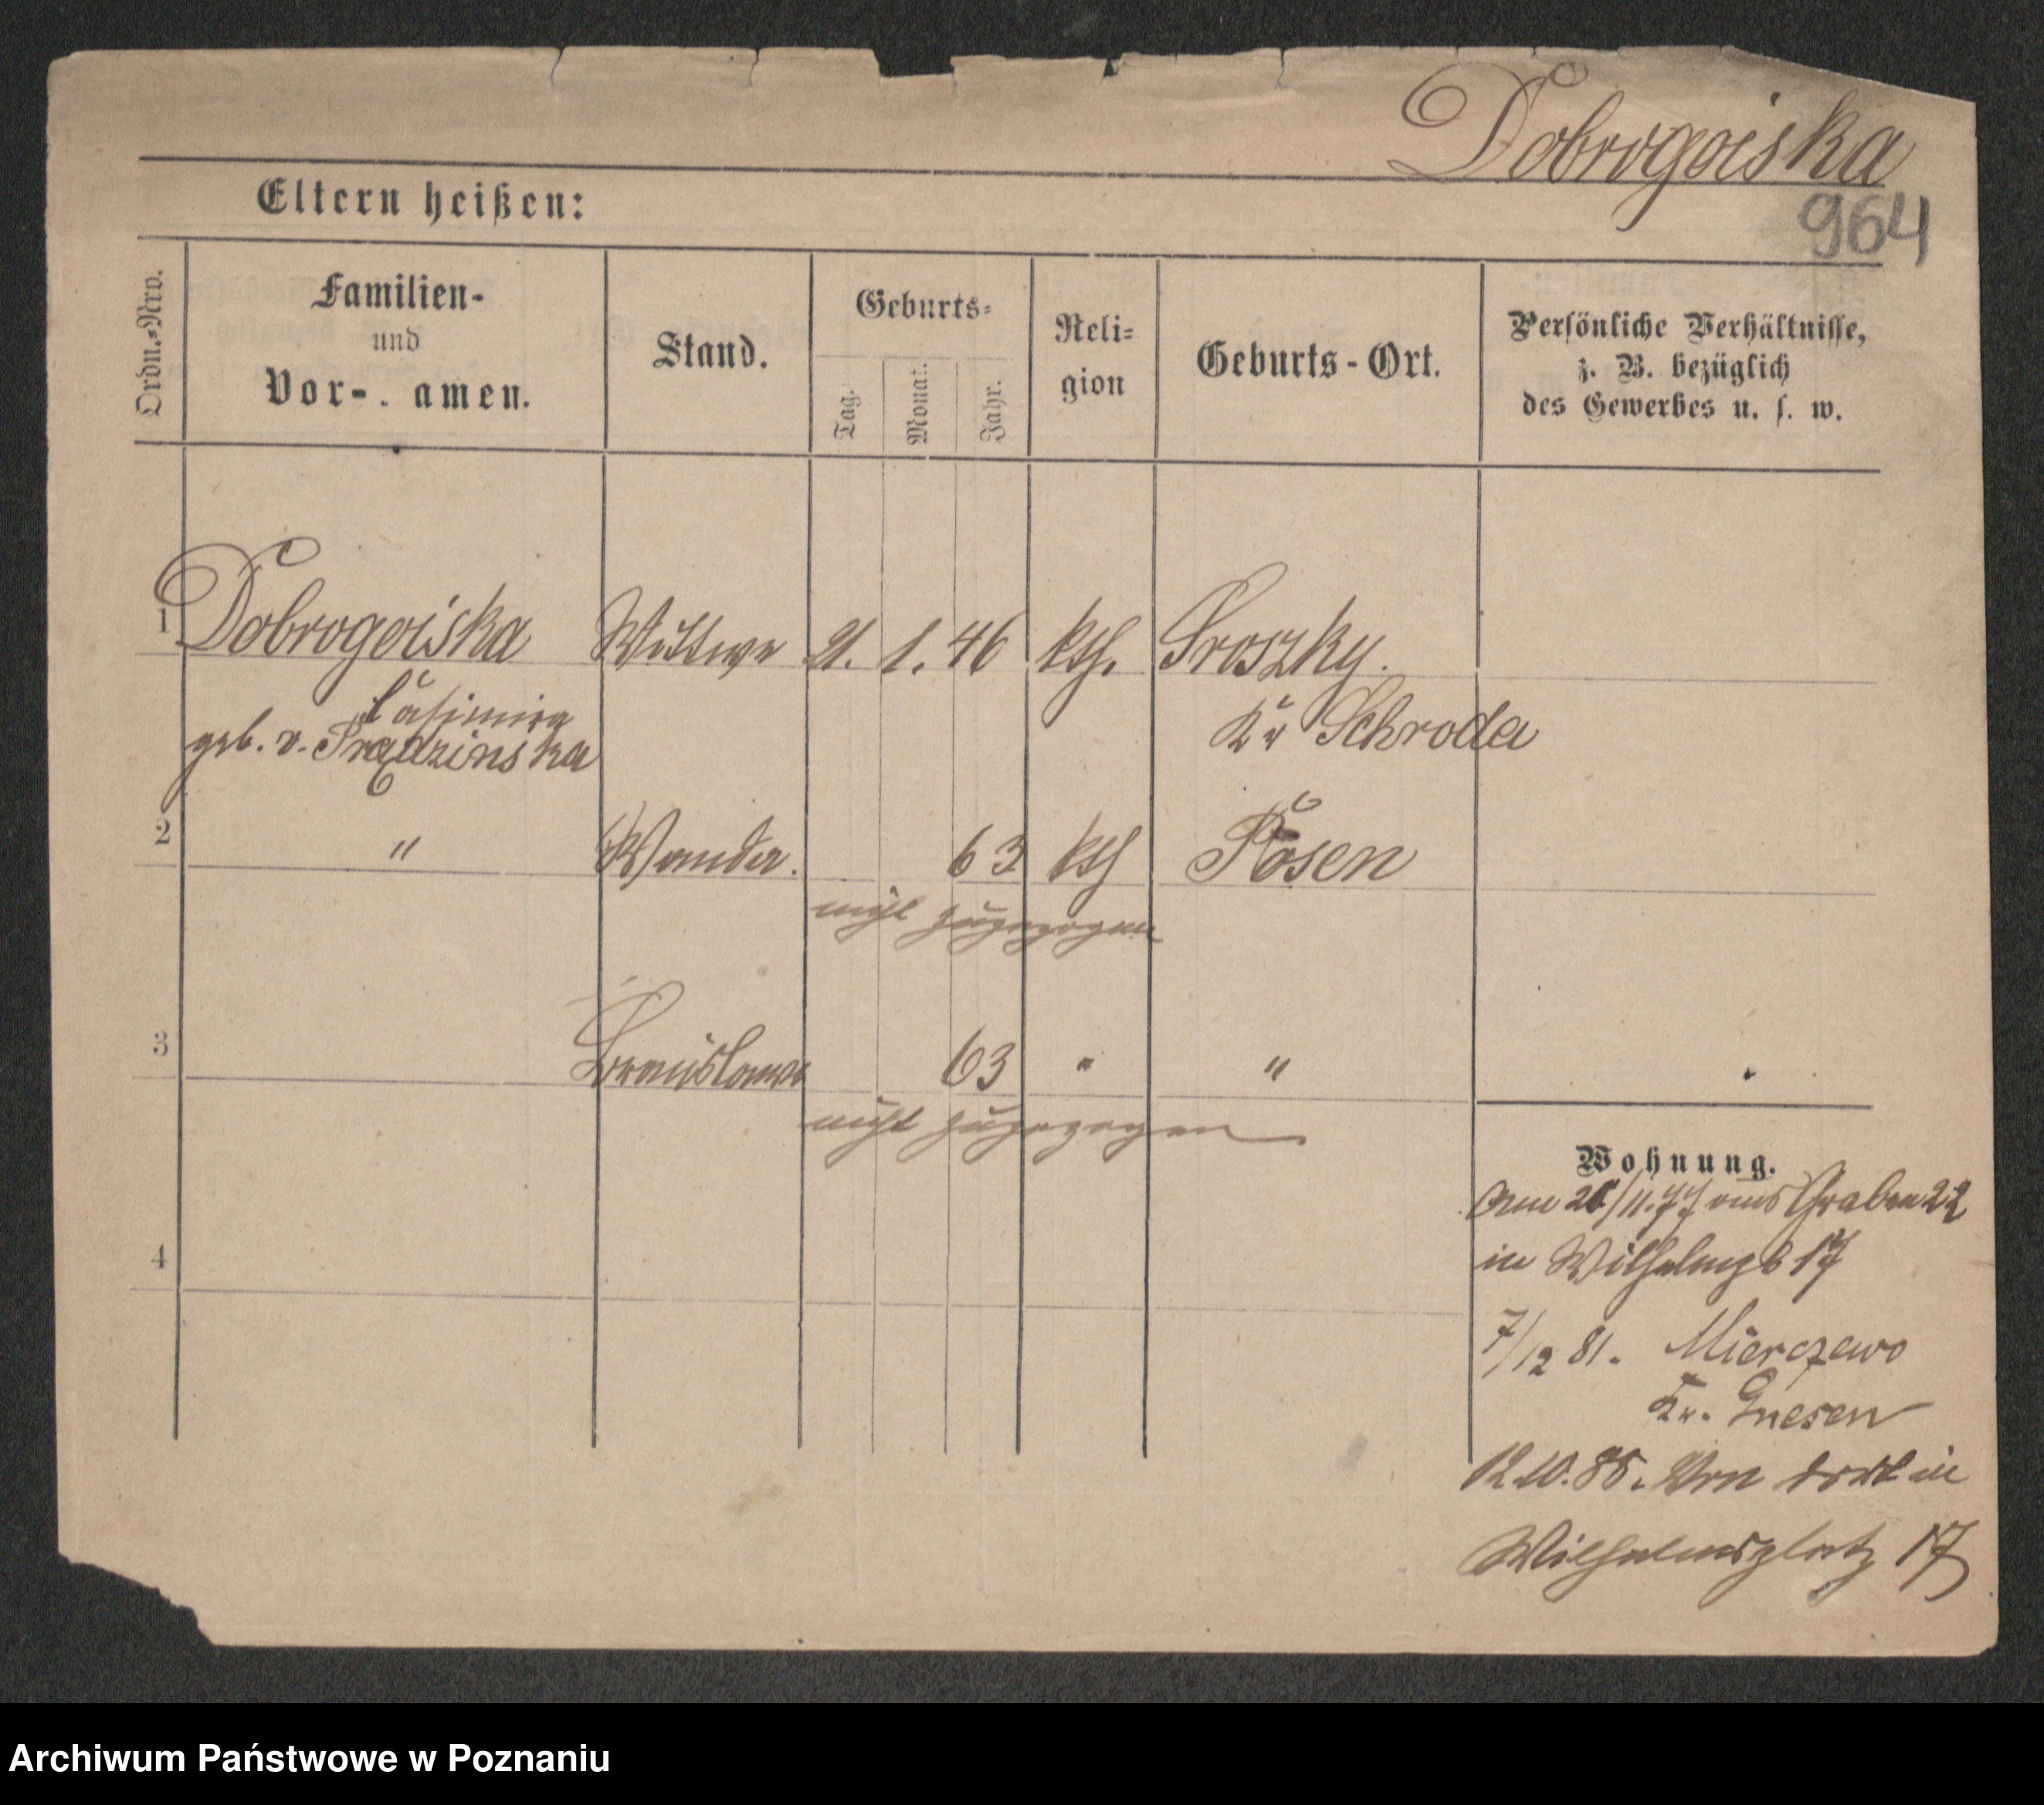 Dobrogoiska
964
Eltern heißen:
Ordn.-Nro.
Familien-
und
Vor- . amen.
Stand.
Geburts-
Tag.
Monat.
Jahr.
Reli-
gion
Geburts-Ort.
Persönliche Verhältnisse,
z. B. bezüglich
des Gewerbes u. s. w.
1 Dobrogoiska Wittwe 21. 1. 46 kth. Groszky.
Casimira
geb. v. Prądzinska
Kr Schroda
2 " Wanda. 63 kth Posen
nicht zugezogen
3 Bronislawa 63 " "
nicht zugezogen
4
Wohnung.
Am /11.77 aus Graben 22
in Wilhelmspl 17
7/12 81. Mierczewo
Kr. Gnesen
12.10.85. Von dort in
Wilhelmsplatz 17
Archiwum Państwowe w Poznaniu